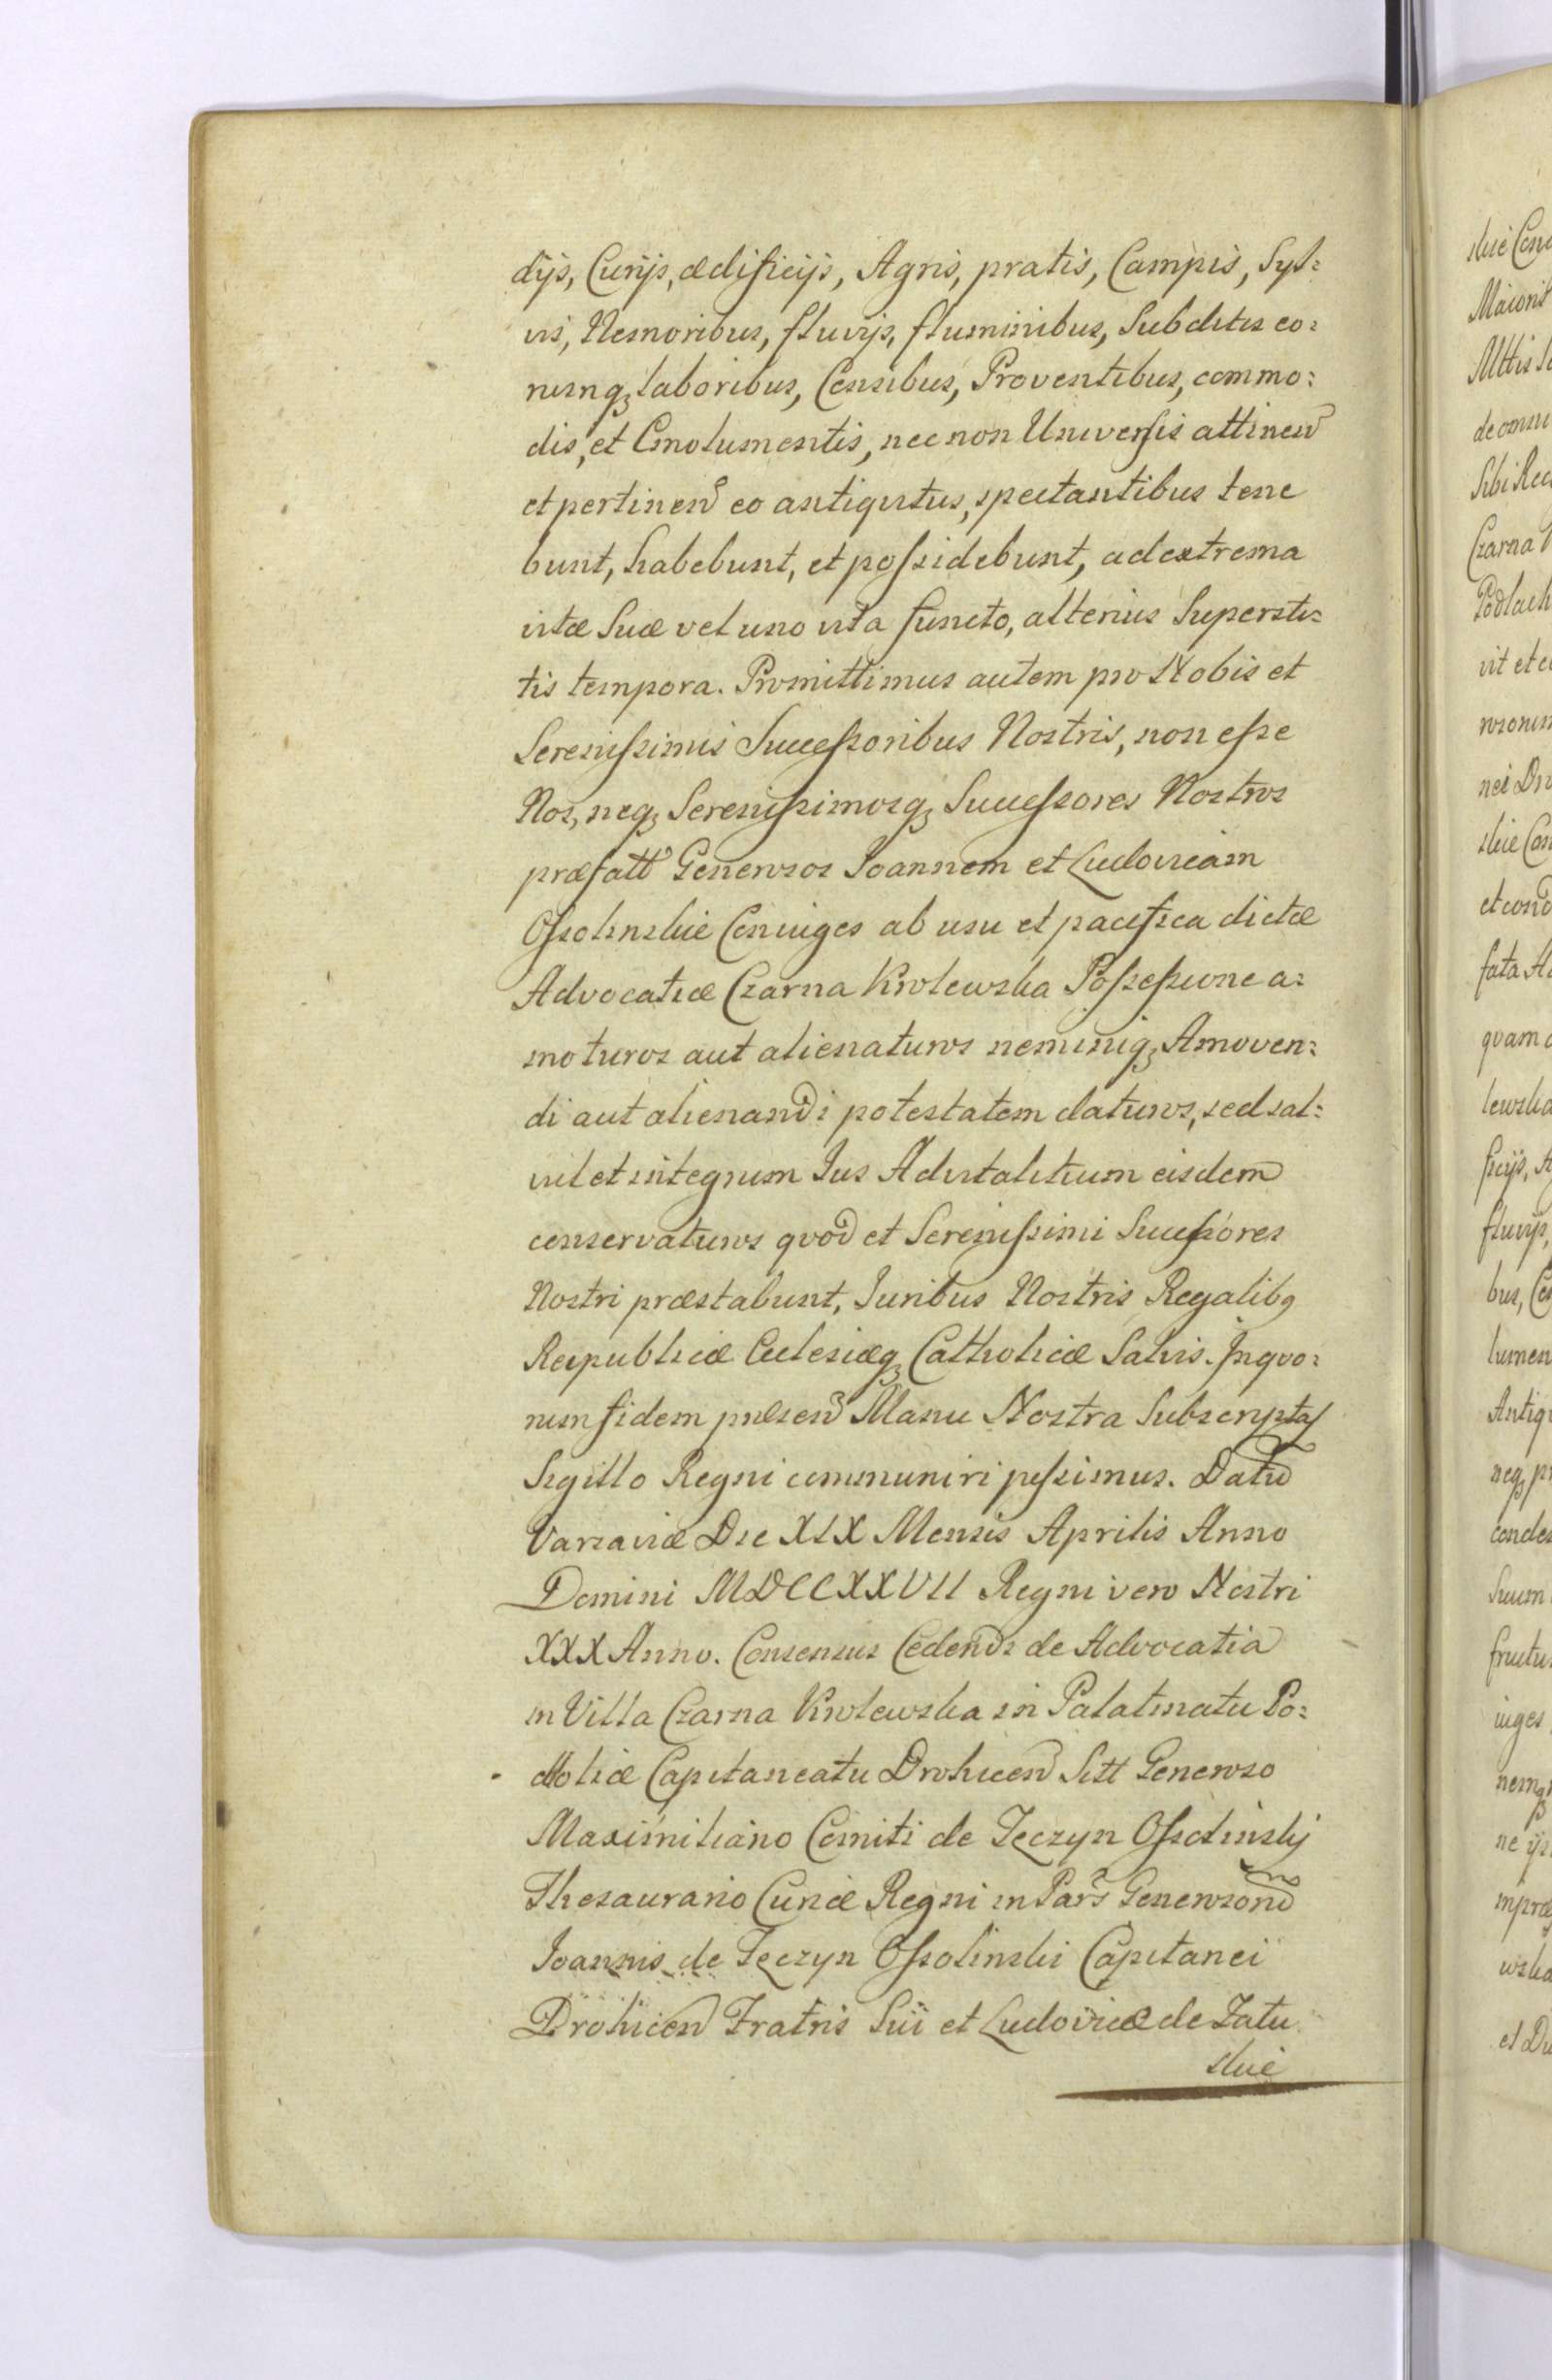 dijs, Curijs, ædificijs, Agris, pratis, Campis, Syl:
vis, Nemoribus, fluvijs, fluminibus, Subditis eo:
rumq₃ laboribus, Censibus, Proventibus, commo:
dis, et Emolumentis, nec non Universis attinen
et pertinen eo antiquitus, spectantibus tene
bunt, habebunt, et possidebunt, ad extrema
vitæ Suæ vel uno vita functo, alterius Supersti:
tis tempora. Promittimus autem pro Nobis et
Serenissimis Successoribus Nostris, non esse
Nos, neq₃ Serenissimosq₃ Successores Nostros
præfatt Generosos Joannem et Ludovicam
Ossolinskie Coniuges ab usu et pacifica dictæ
Advocatiæ Czarna Krolewska Possessione a:
moturos aut alienaturos neminiq₃ Amoven:
di aut alienandi potestatem daturos, sed sal:
vu et integrum Jus Advitalitium eisdem
conservaturos qvod et Serenissimi Successores
Nostri præstabunt, Juribus Nostris Regalibꝯ
Reipublicæ Ecclesiæq₃ Catholicæ Salvis. In qvo:
rum fidem præsen Manu Nostra Subscriptas
Sigillo Regni communiri jussimus. Datu
Varsaviæ Die XIX Mensis Aprilis Anno
Domini MDCCXXVII Regni vero Nostri
XXX Anno. Consensus Cedendi de Advocatia
in Villa Czarna Krolewska in Palatinatu Po:
dloliæ Capitaneatu Drohicen Sitt Generoso
Maximiliano Comiti de Teczyn Ossolinskj
Thesaurario Curiæ Regni in Pars Generson
Joannis de Teczyn Ossolinski Capitanei
Drohicen Fratris Sui et Ludovicæ de Zatu
skie